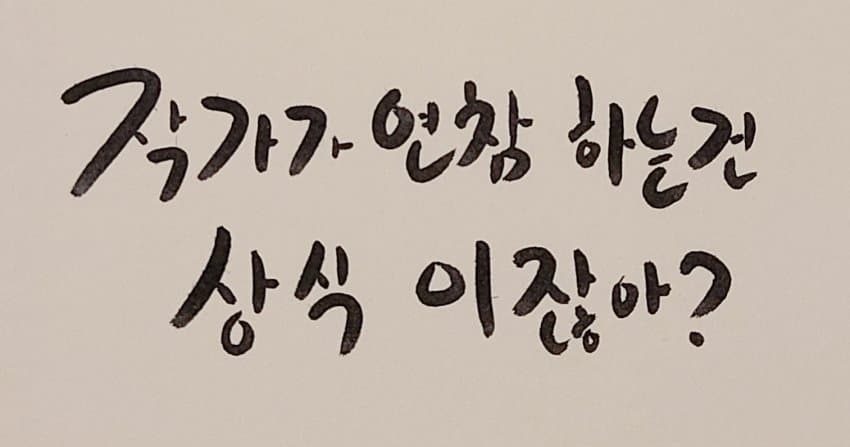 작가가 연참 하는건
상식 이잖아?